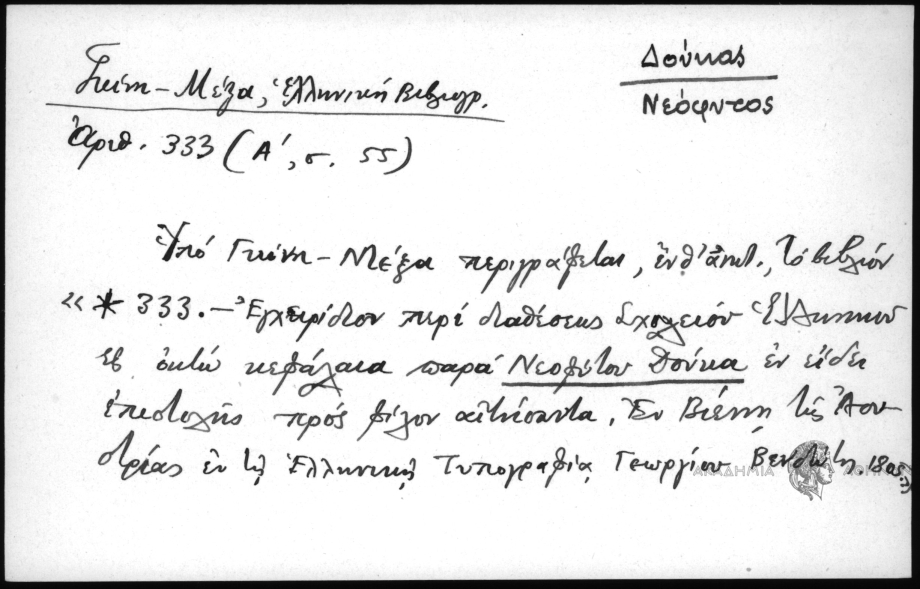 Γκίνη – Μέξα, Ἑλληνική Βιβλιογρ.
Ἀριθ. 333 (Α', σ. 55)
Δούκας
Νεόφυτος
Ὑπό Γκίνη – Μέξα περιγράφεται, ἐνθ' ἀνωτ., τό βιβλίον
« * 333. – Ἐγχειρίδιον περί διαθέσεως Σχολείου Ἑλληνικοῦ
εἰς ὀκτώ κεφάλαια παρά Νεοφύτου Δούκα ἐν εἴδει
ἐπιστολῆς πρός φίλον αἰτήσαντα. Ἐν Βιέννῃ τῆς Ἀου-
στρίας ἐν τῇ Ἑλληνικῇ Τυπογραφίᾳ Γεωργίου Βενδώτη.
ΑΚΑΔΗΜΙΑ ΑΘΗΝΩΝ